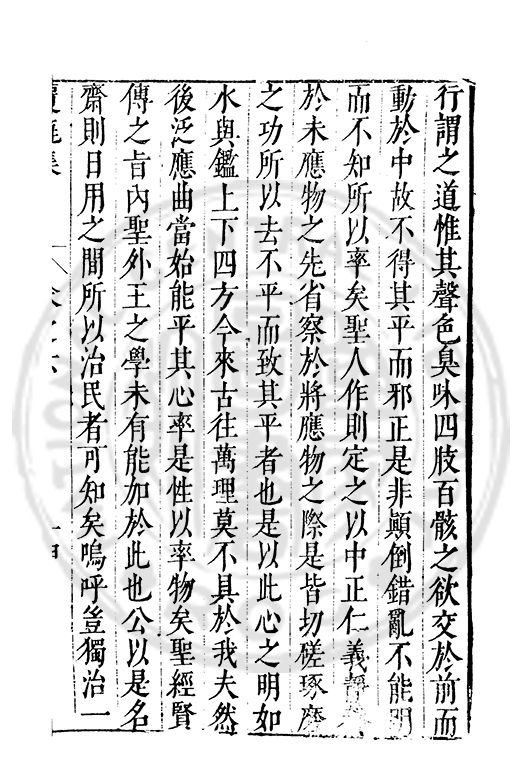 行謂之道惟其聲色臭味四肢百骸之欲交於前而
動於中故不得其平而邪正是非顛倒錯亂不能明
而不知所以率矣聖人作則定之以中正仁義靜
於未應物之先省察於將應物之際是皆切磋琢磨
之功所以去不平而致其平者也是以此心之明如
水與鑑上下四方今來古往萬理莫不具於我夫然
後泛應曲當始能平其心率是性以率物矣聖經賢
傳之旨內聖外王之學未有能加於此也公以是名
齋則日用之間所以治民者可知矣嗚呼豈獨治一